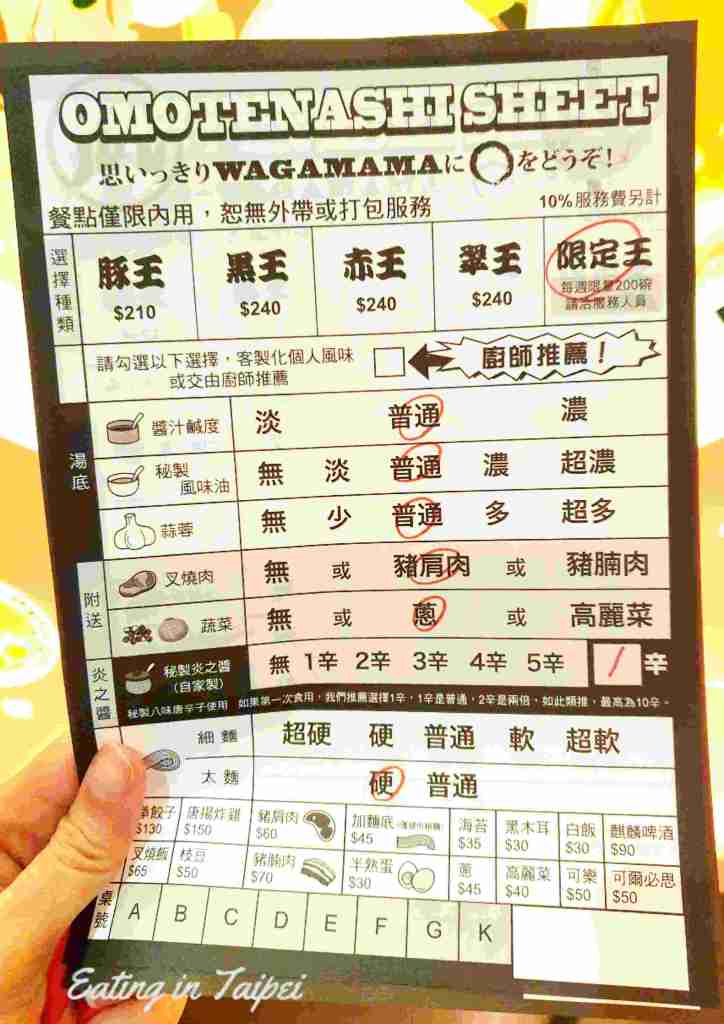 OMOTENASHI SHEET
思いっきりWAGAMAMAに〇をどうぞ!
餐點僅限內用，恕無外帶或打包服務 10%服務費另計
選擇種類
豚王 黒王 赤王 翠王 限定王
$210 $240 $240 $240 每週限量200碗
請洽服務人員
請勾選以下選擇，客製化個人風味
或交由廚師推薦
廚師推薦!
湯底
醬汁鹹度 淡 普通 濃
秘製風味油 無 淡 普通 濃 超濃
蒜蓉 無 少 普通 多 超多
附送
叉燒肉 無 或 豬肩肉 或 豬腩肉
蔬菜 無 或 蔥 或 高麗菜
炎之醬
秘製炎之醬 無 1辛 2辛 3辛 4辛 5辛 / 辛
(自家製)
秘製八味唐辛子使用 如果第一次食用，我們推薦選擇1辛，1辛是普通，2辛是兩倍，如此類推，最高為10辛。
細麵 超硬 硬 普通 軟 超軟
太麵 硬 普通
餃子 唐揚炸雞 豬肩肉 加麵底 海苔 黑木耳 白飯 麒麟啤酒
$130 $150 $60 $45 $35 $30 $30 $90
叉燒飯 枝豆 豬腩肉 半熟蛋 蔥 高麗菜 可樂 可爾必思
$65 $50 $70 $30 $45 $40 $50 $50
桌號 A B C D E F G K
Eating in Taipei